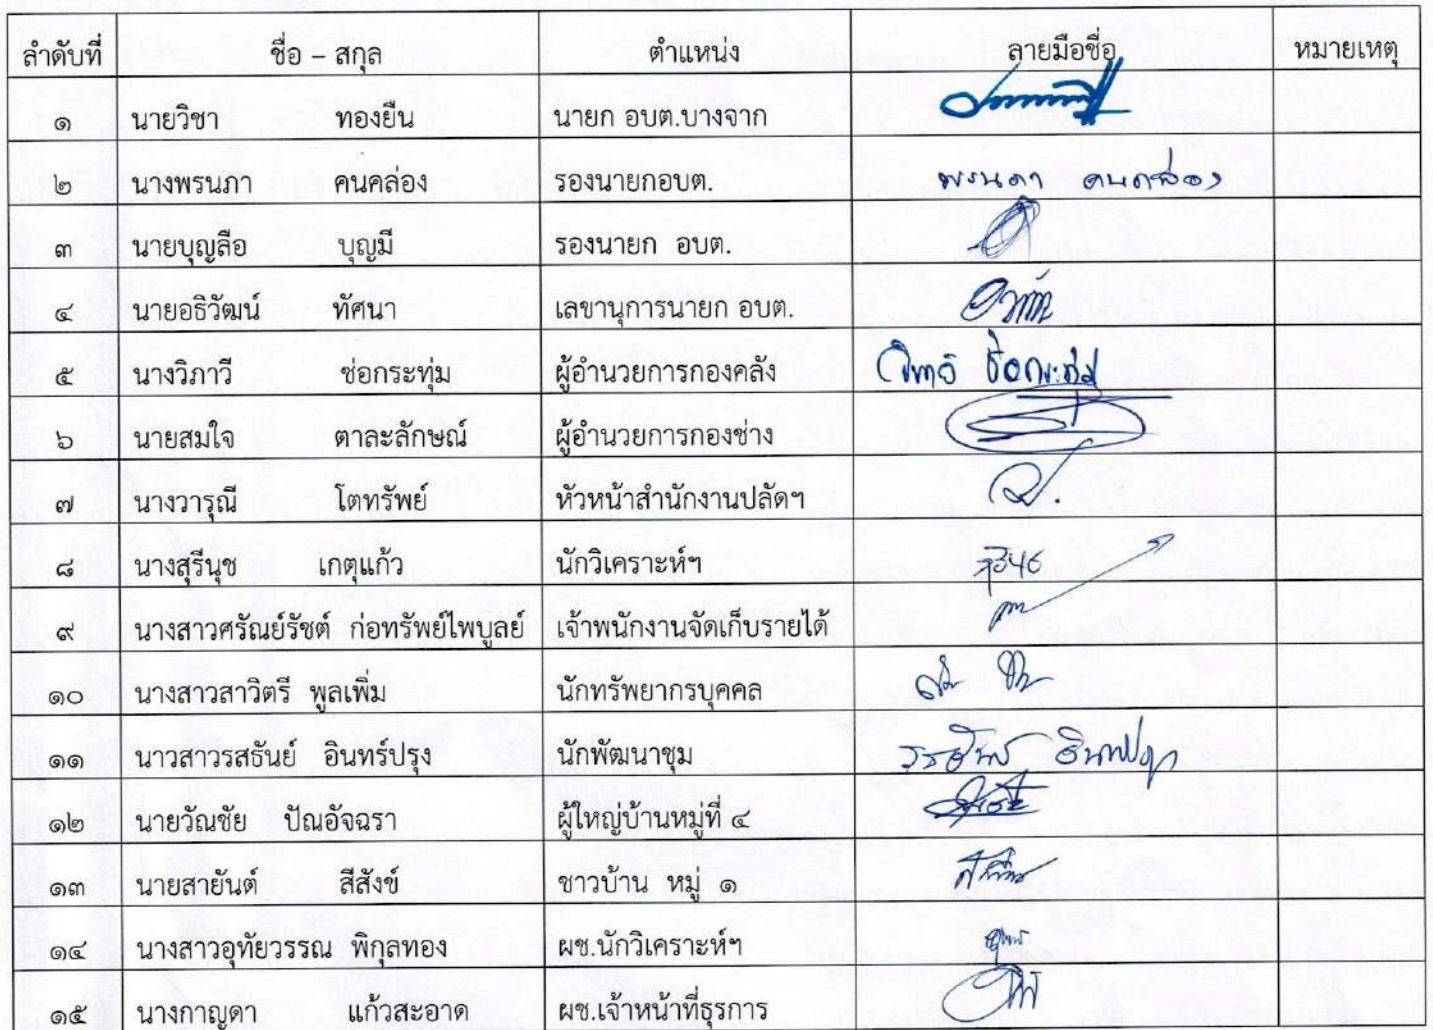 ลำดับที่ ชื่อ – สกุล ตำแหน่ง ลายมือชื่อ หมายเหตุ
๑ นายวิชา ทองยืน นายก อบต.บางจาก
๒ นางพรนภา คนคล่อง รองนายกอบต. พรนภา คนคล่อง
๓ นายบุญลือ บุญมี รองนายก อบต.
๔ นายอธิวัฒน์ ทัศนา เลขานุการนายก อบต.
๕ นางวิภาวี ช่อกระทุ่ม ผู้อำนวยการกองคลัง วิภาวี ช่อกระทุ่ม
๖ นายสมใจ ตาละลักษณ์ ผู้อำนวยการกองช่าง
๗ นางวารุณี โตทรัพย์ หัวหน้าสำนักงานปลัดฯ
๘ นางสุรีนุช เกตุแก้ว นักวิเคราะห์ฯ
๙ นางสาวศรัณย์รัชต์ ก่อทรัพย์ไพบูลย์ เจ้าพนักงานจัดเก็บรายได้
๑๐ นางสาวสาวิตรี พูลเพิ่ม นักทรัพยากรบุคคล
๑๑ นาวสาวรสธันย์ อินทร์ปรุง นักพัฒนาชุม
๑๒ นายวัณชัย ปัณอัจฉรา ผู้ใหญ่บ้านหมู่ที่ ๔
๑๓ นายสายันต์ สีสังข์ ชาวบ้าน หมู่ ๑
๑๔ นางสาวอุทัยวรรณ พิกุลทอง ผช.นักวิเคราะห์ฯ
๑๕ นางกาญดา แก้วสะอาด ผช.เจ้าหน้าที่ธุรการ